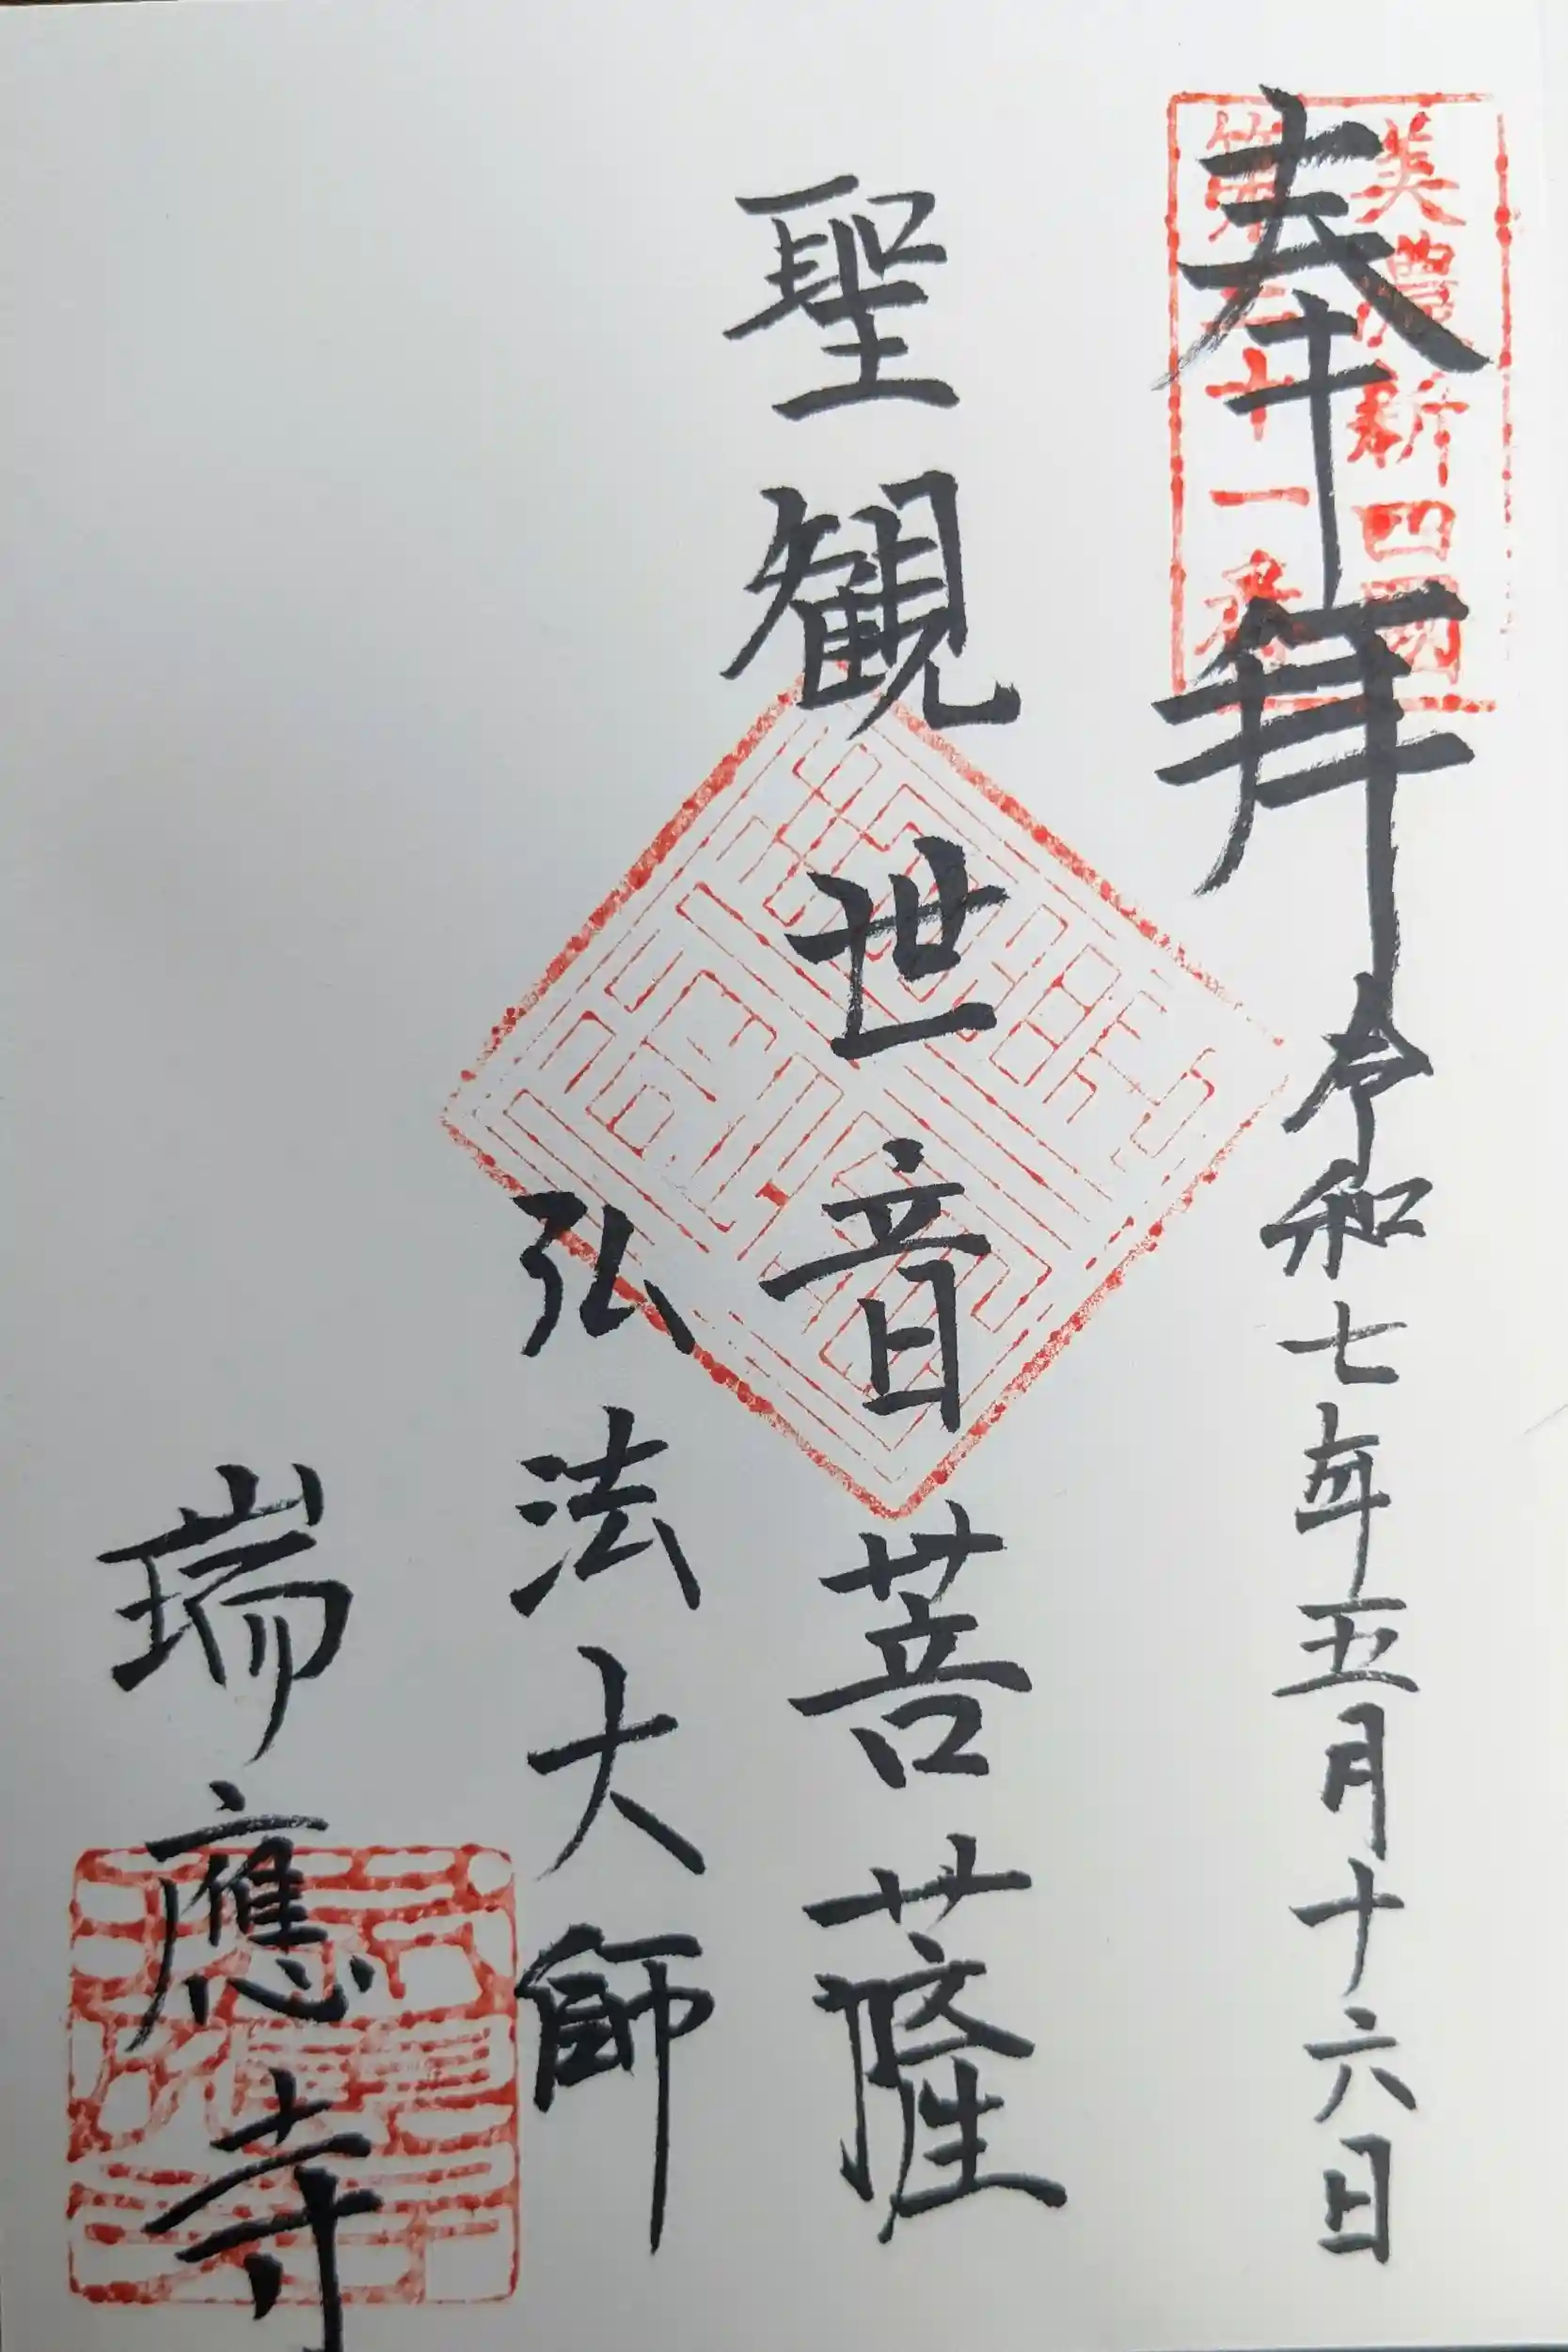 奉拝 令和七年五月十六日
美濃新四国
十一番
聖観世音菩薩
弘法大師
瑞應寺